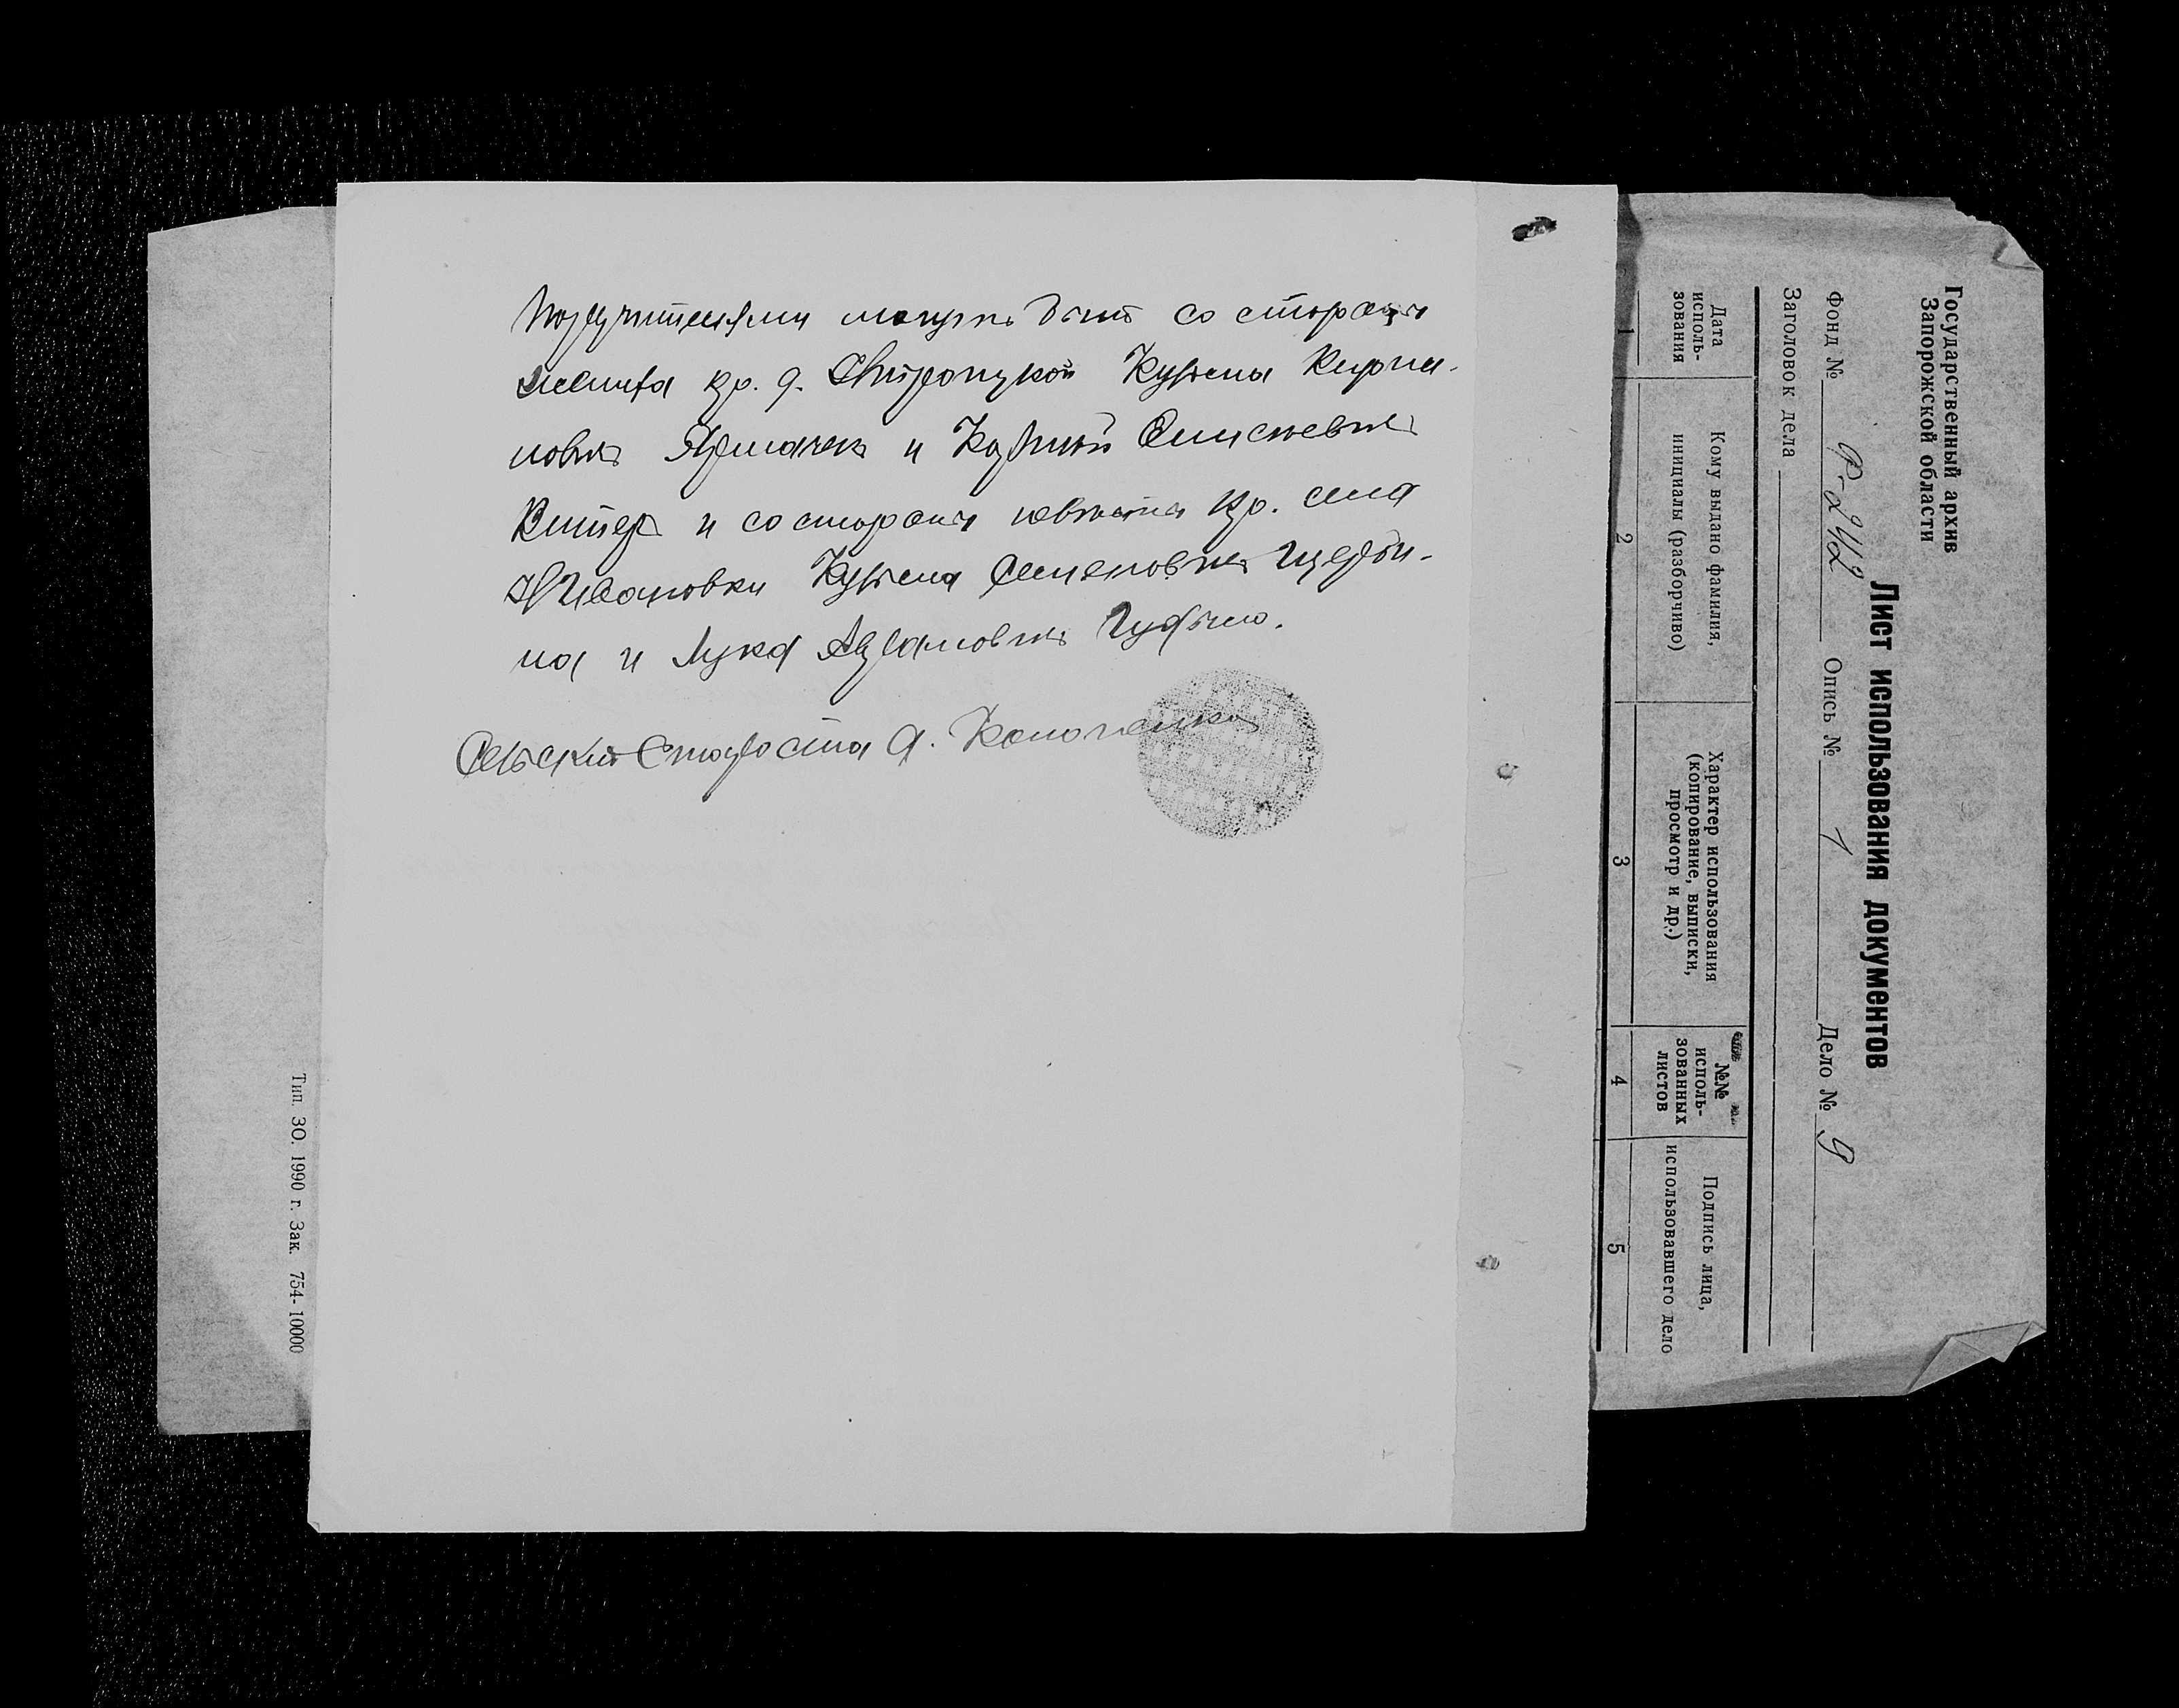 Поручителями могутъ быть со стороны
жениха кр. д. Астраопузкой Кузьма Кирил-
ловъ и Карпъ Елисеевъ
и со стороны невесты кр. села
Ивановки Кузьма Семеновъ Щерби-
на и Лука Абрамовъ
Сельский Староста А. Кононенко
Государственный архив
Запорожской области
Лист использования документов
Фонд № Р-242 Опись № 1 Дело № 9
Заголовок дела
Дата
исполь-
зования
Кому выдано фамилия,
инициалы (разборчиво)
Характер использования
(копирование, выписки,
просмотр и др.)
№№
исполь-
зованных
листов
Подпись лица,
использовавшего дело
1 2 3 4 5
Тип. ЗО. 1990 г. Зак. 754-10000